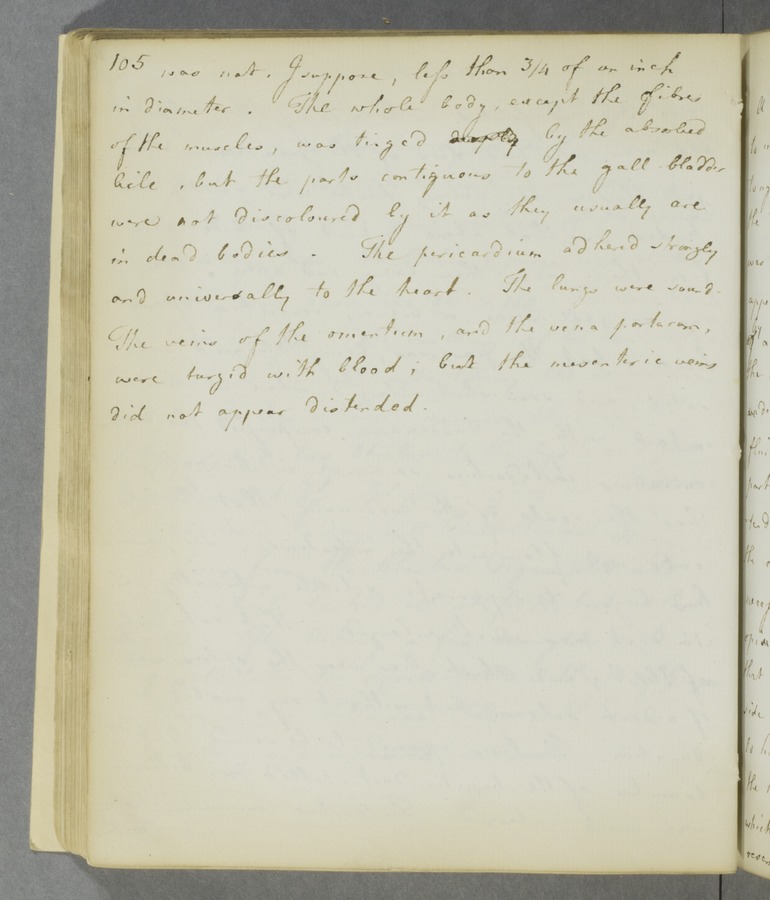 105 was not, I suppose, less than 3/4 of an inch
in diameter. The whole body, except the fibres
of the muscles, was tinged deeply by the absorbed
bile, but the parts contiguous to the gall bladder
were not discoloured by it as they usually are
in dead bodies. The pericardium adhered strongly
and universally to the heart. The lungs were sound.
The veins of the omentum, and the vena portarum,
were turgid with blood; but the mesenteric veins
did not appear distended.